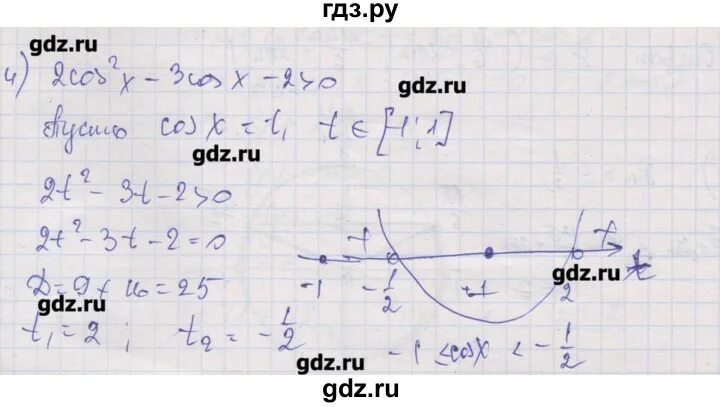 гдз.ру
gdz.ru
4) 2cos²x - 3cosx - 2>0
gdz.ru
Пусть cosx = t, t ∈ [-1; 1]
gdz.ru
2t² - 3t - 2>0
2t² - 3t - 2 = 0
+ +
gdz.ru t
Д = 9 + 16 = 25
-1 -1/2 +1 2
gdz.ru
t₁ = 2 ; t₂ = -1/2
-1 ≤ cosx < -1/2
gdz.ru
gdz.ru